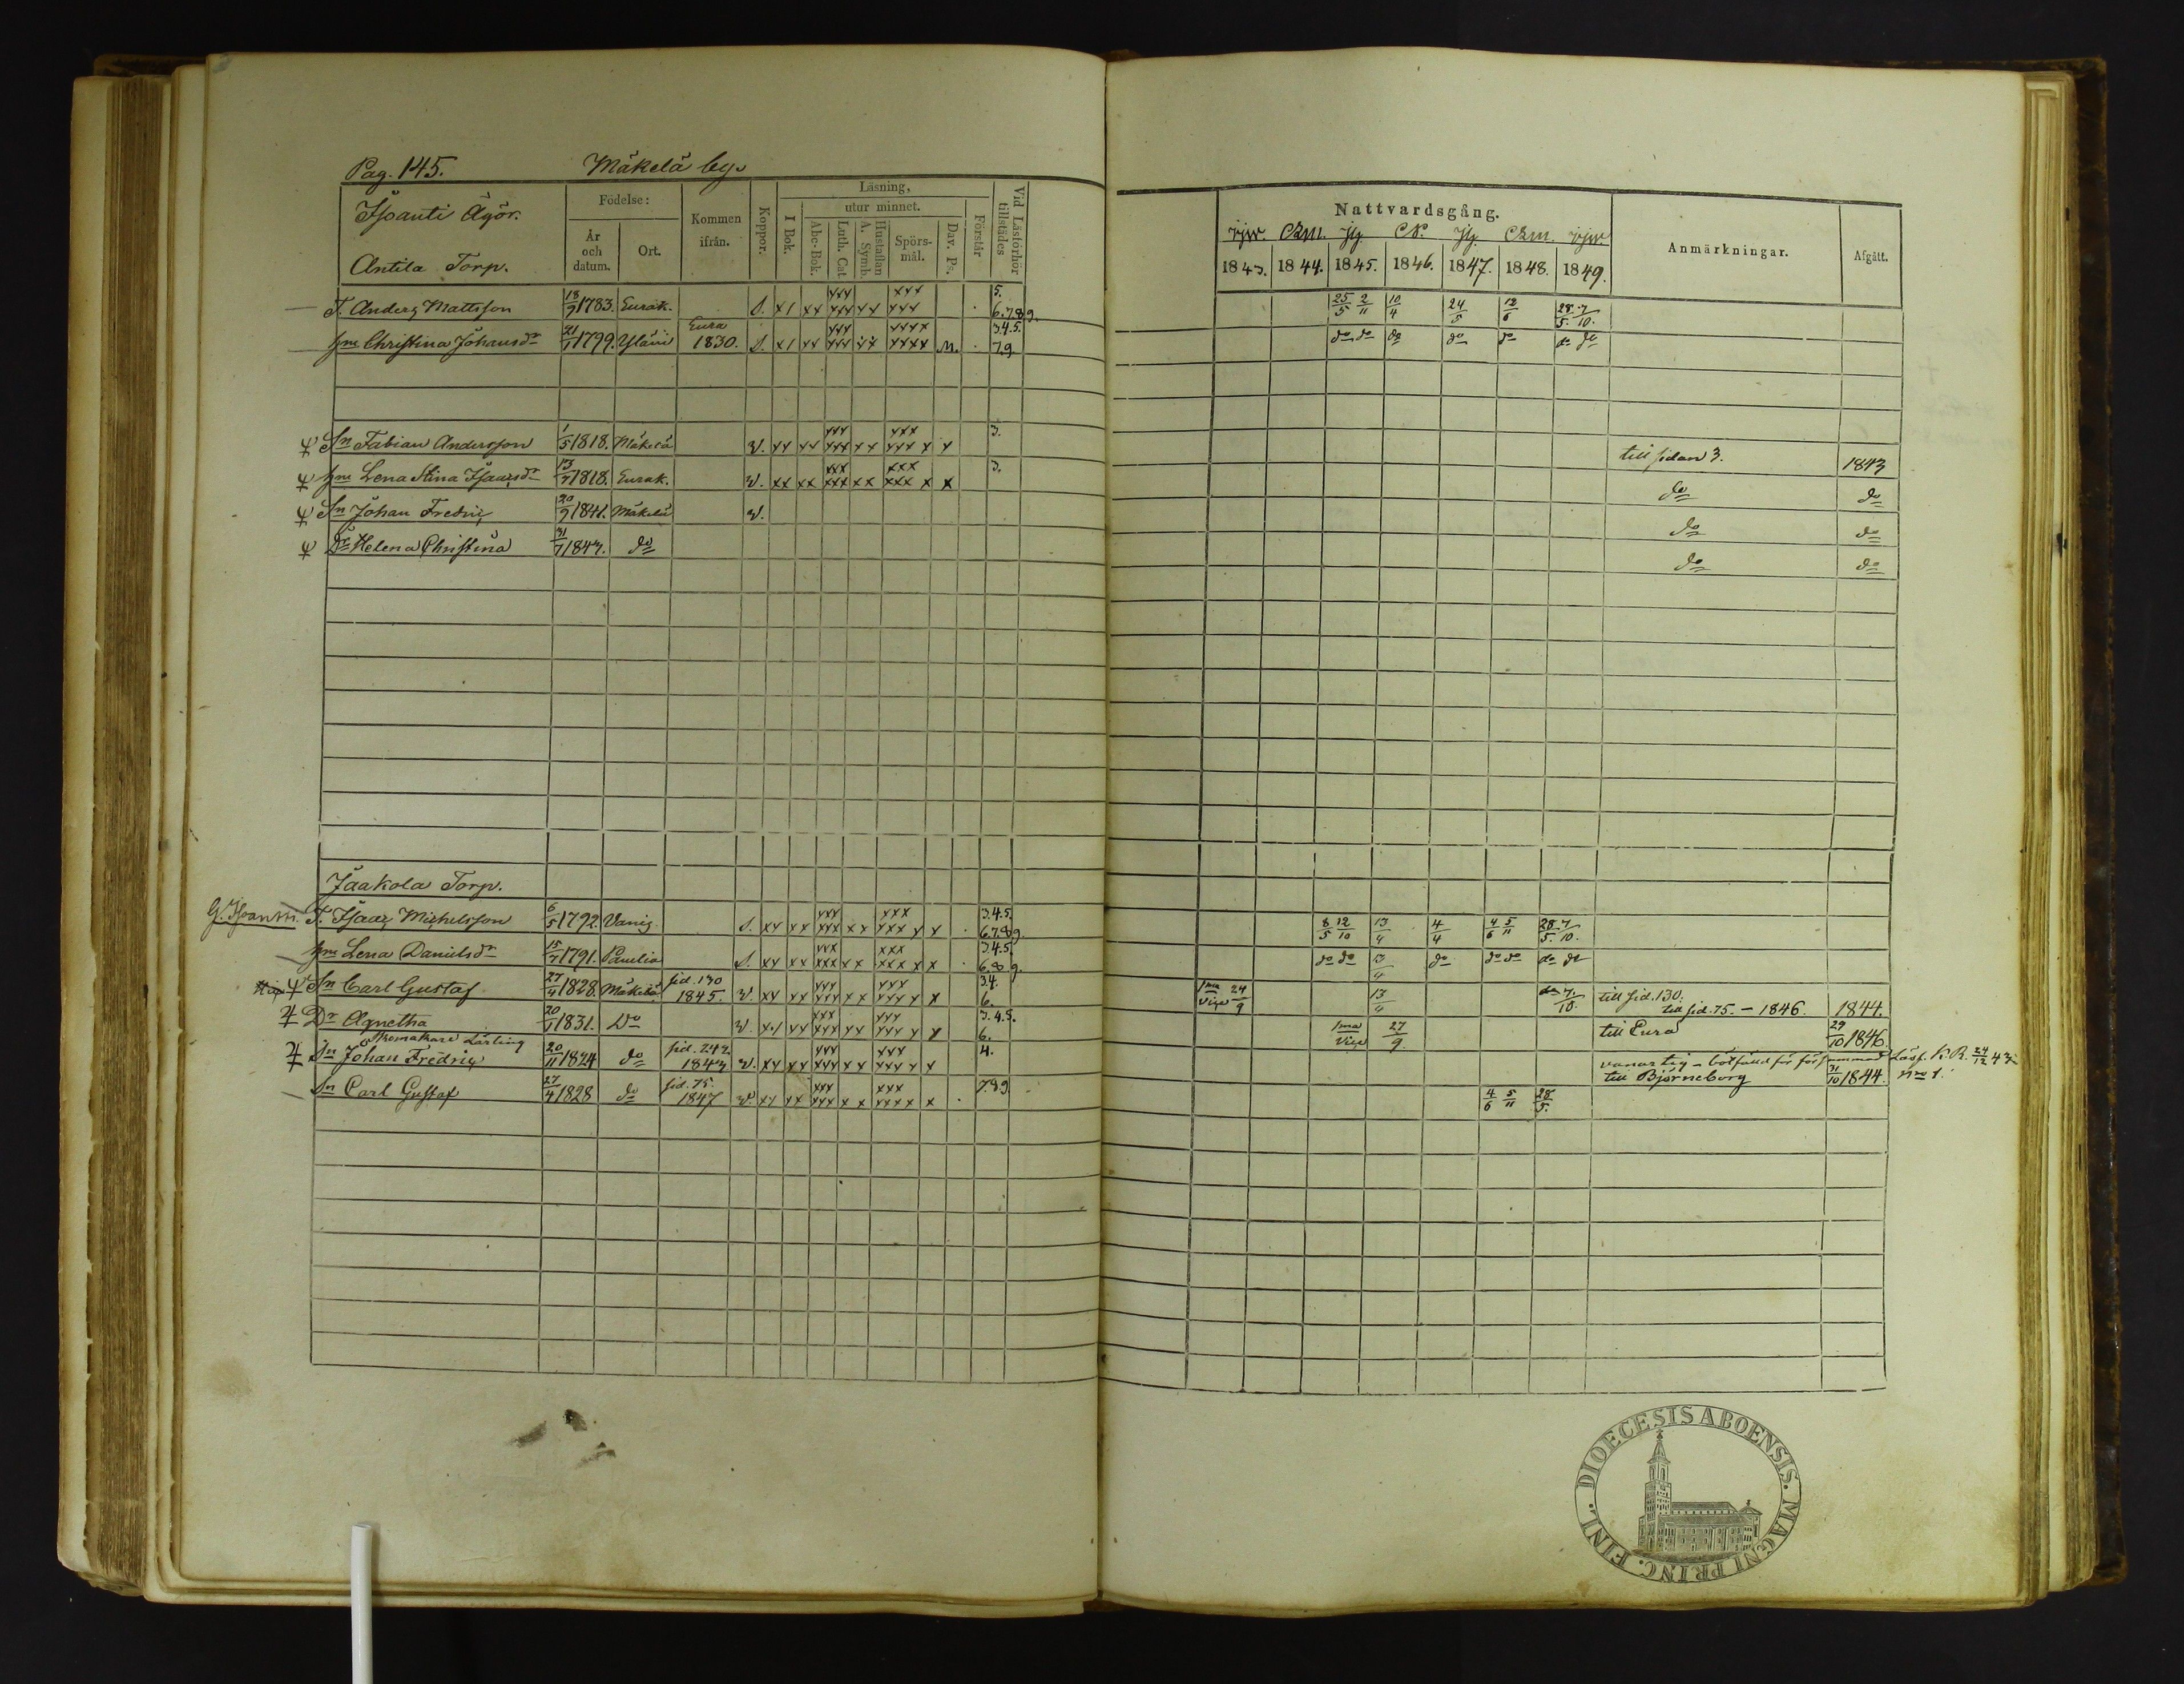 Pag. 145. Mäkelä by.
Ägor.
Antila Torp.
Födelse:
År och datum.
Ort.
Kommen ifrån.
Koppor.
Läsning,
I Bok.
utur minnet.
Abc-Bok.
Luth. Cat.
Hustaflan A. Symb.
Spörs-mål.
Dav. Ps.
Förstår
Vid Läsförhör tillstädes
Nattvardsgång.
1843. 1844. 1845. 1846. 1847. 1848. 1849.
Anmärkningar.
Afgått.
T. Anders Mattsson 18/9 1783. Eurak. S. x1 xx xxx xxx xx xxx xxx 5. 6.7.8.9. 25/5 2/11 10/4 24/5 12/6 28/5. 7/10.
Christina Johansdr 21/1 1799. Yläni Eura 1830. S. x1 xx xxx xxx xx xxxx xxxx 3.4.5. 7.9. do do do do do do do
Sn Fabian Andersson 1/5 1818. Mäkelä v. xx xx xxx xxx xx xxx xxx x x 3. till sidan 3. 1843
Lena Stina Isaacsdr 13/7 1818. Eurak. v. xx xx xxx xxx xx xxx xxx x x 3. do do
Sn Johan Fredric 20/9 1841. Mäkelä v. do do
Dr Helena Christina 31/7 1843. do do do
Jaakola Torp.
T. Isaac Michelsson 6/5 1792. S. xx xx xxx xxx xx xxx xxx x x 3.4.5. 6.7.8.9. 8/5 12/10 13/4 4/4 4/6 5/11 28/5. 7/10.
Lena Danielsdr 15/7 1791. Panelia S. xx xx xxx xxx xx xxx xxx x x 3.4.5. 6.8.9. do do 13/4 do do do do do
Sn Carl Gustaf 27/4 1828. Mäkelä sid. 130 1845. v. xx xx xxx xxx xx xxx xxx x x 3.4. 6. 1ma 24/9 13/4 7/10. till sid. 130. till sid. 75. - 1846. 1844.
Dr Agnetha 20/1 1831. Do v. x1 xx xxx xxx xx xxx xxx x x 3.4.5. 6. 1ma 27/9. till Eura 29/10 1846.
Skomakare Lärling
Sn Johan Fredric 20/11 1824 do 1843 v. xx xx xxx xxx xx xxx xxx x x 4. till Björneborg 31/10 1844.
Sn Carl Gustaf 27/4 1828 do sid. 75. 1847 v. xx xx xxx xxx x x xxx xxx x x 7.8.9 4/6 5/11 28/5.
DIOECESIS ABOENSIS. MAGNI PRINC. FINL.